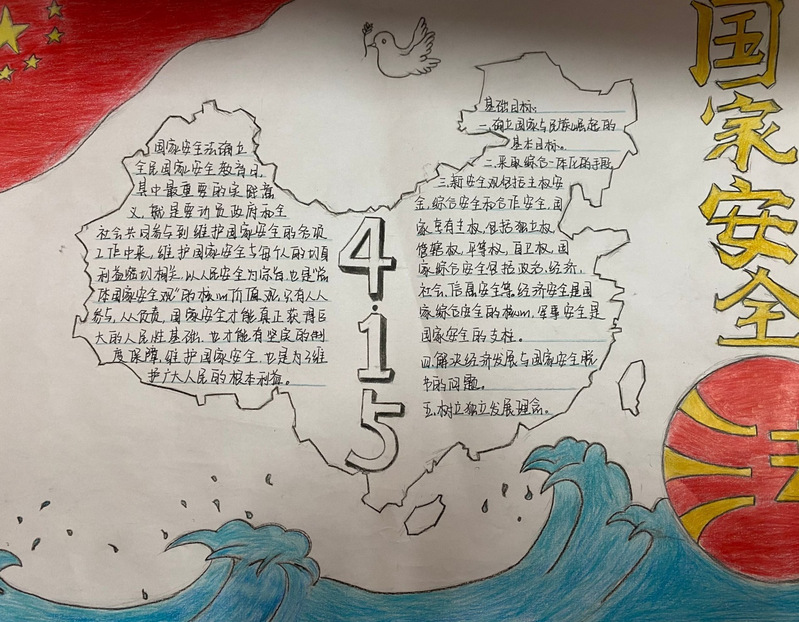 国家安全
国家安全法确立
全民国家安全教育日,
其中最重要的实践意
义,就是要动员政府和全
社会共同参与到维护国家安全的各项
工作中来,维护国家安全与每个人的切身
利益密切相关,以人民安全为宗旨,也是“总
体国家安全观”的核心价值观,只有人人
参与,人人负责,国家安全才能真正获得巨
大的人民性基础,也才能有坚实的制
度保障,维护国家安全,也是为了维
护广大人民的根本利益。
4.15
基础目标:
一.确立国家与民族崛起的
基本目标。
二.采取综合一体化的手段
三.新安全观包括主权安
全,综合安全和合作安全,国
家享有主权,包括独立权,
管辖权,平等权,自卫权,国
家综合安全包括政治,经济,
社会,信息安全等,经济安全是国
家综合安全的核心,军事安全是
国家安全的支柱。
四.解决经济发展与国家安全脱
节的问题。
五.树立独立发展理念。
法